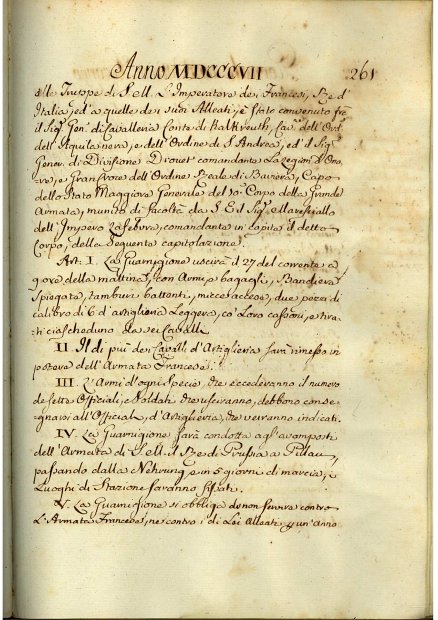 Anno MDCCCVII
261
alle Truppe di S. M. L'Imperatore de i Francesi, Rè d'
Italia, ed'a quelle de i suoi Alleati, è stato convenuto frè
il Sig.r Gen.l di Cavalleria Conte di Kalkreuth, Cav.r dell'Ord.e
dell'Aquila nera, e dell'Ordine di S. Andrea, ed'il Sig.r
Gener. di Divisione Drouet comandante La Legion d'Ono-
re, e Gran Croce dell'Ordine Reale di Baviera, Capo
dello Stato Maggiore Generale del 10.o Corpo della Grande
Armata, munito di facoltà da S. E. il Sig.r Maresciallo
dell'Impero Lefebvre, comandante in capite il detto
Corpo, della Seguente capitolazione.
Art. I. La Guarnigione uscirà il 27 del corrente a
9 ore della mattina, con Armi, e bagagli, Bandiera
Spiegata, tamburi battenti, micce accese, due pezzi di
calibro di 6 d'artiglieria Leggera, co' Loro cassoni, e tira-
ti ciascheduno da sei Cavalli.
II. Il di più de i Cavalli d'Artiglieria sarà rimesso in
potere dell'Armata Francese.
III. L'Armi d'ogni Specie, che eccederanno il numero
de Sott'Officiali, e Soldati che usciranno, debbono conse-
gnarsi all'Officiale d'Artiglieria, che verranno indicati.
IV. La Guarnigione sarà condotta agl'avamposti
dell'Armata di S. M. il Rè di Prussia a Pillau,
passando dalla Nehrung, e in 5 giorni di marcia, i
Luoghi di Stazione saranno fissati.
V. La Guarnigione si obbliga de non servire contro
L'Armata Francese, ne contro i di Lei Alleati p un'Anno